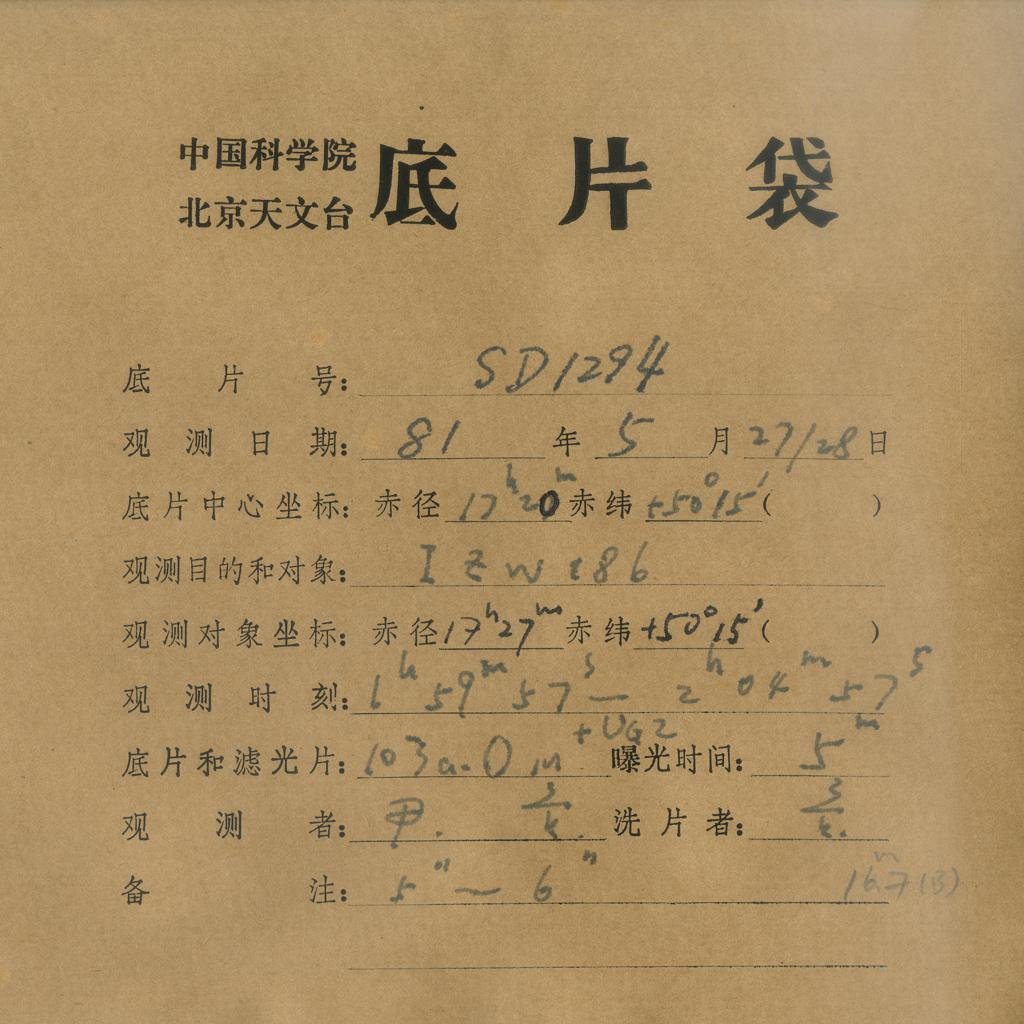 中国科学院
北京天文台
底片袋
底片号: SD1294
观测日期: 81年5月27/28日
底片中心坐标: 赤径17ʰ20ᵐ赤纬+50°15′( )
观测目的和对象: I Zw 186
观测对象坐标: 赤径17ʰ27ᵐ赤纬+50°15′( )
观测时刻: 1ʰ59ᵐ57ˢ— 2ʰ04ᵐ57ˢ
底片和滤光片: 103a-O +UG2 曝光时间: 5ᵐ
观测者: 洗片者:
备注: 5″~6″ 16.7(B)